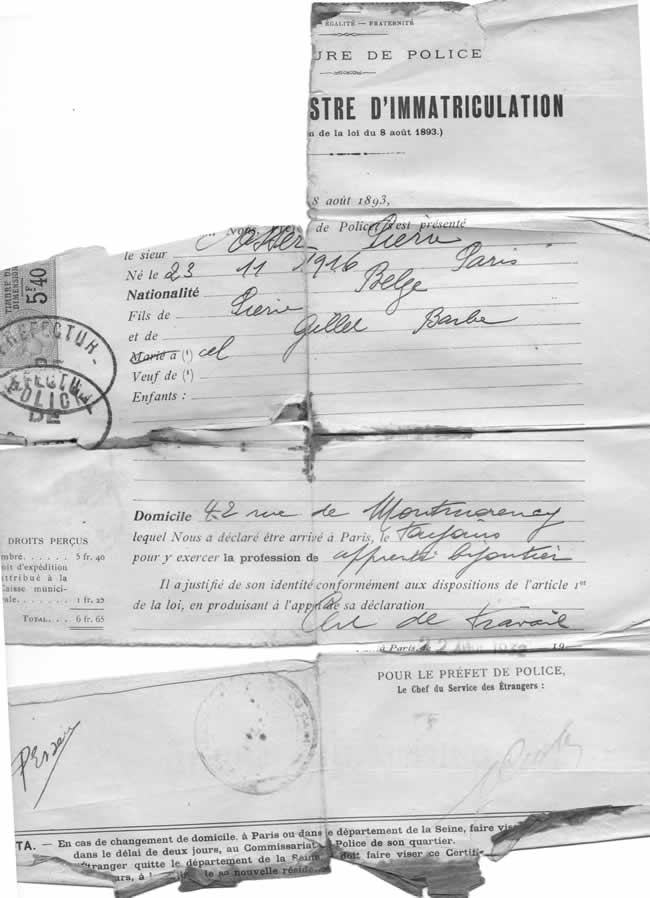 ÉGALITÉ — FRATERNITÉ
URE DE POLICE
STRE D'IMMATRICULATION
n de la loi du 8 août 1893.)
8 août 1893,
de Police, s'est présenté
le sieur Pierre
Né le 23 11 1916 Paris
Nationalité Belge
Fils de Pierre
et de Gillet Barbe
Marié à (¹) cel
Veuf de (¹)
Enfants :
TIMBRE DE
DIMENSION
5F40
PREFECTUR
DE
POLICE
Domicile 42 rue de Montmorency
lequel Nous a déclaré être arrivé à Paris, le toujours
pour y exercer la profession de apprenti bijoutier
Il a justifié de son identité conformément aux dispositions de l'article 1er
de la loi, en produisant à l'appui de sa déclaration
Cert de travail
DROITS PERÇUS
mbre...... 5 fr. 40
oit d'expédition
attribué à la
Caisse munici-
pale....... 1 fr. 25
TOTAL... 6 fr. 65
à Paris, de 22 19
POUR LE PRÉFET DE POLICE,
Le Chef du Service des Étrangers :
TA. — En cas de changement de domicile, à Paris ou dans le département de la Seine, faire vise
dans le délai de deux jours, au Commissariat Police de son quartier.
étranger quitte le département de la Seine, doit faire viser ce Certifi
urs, à sa nouvelle réside